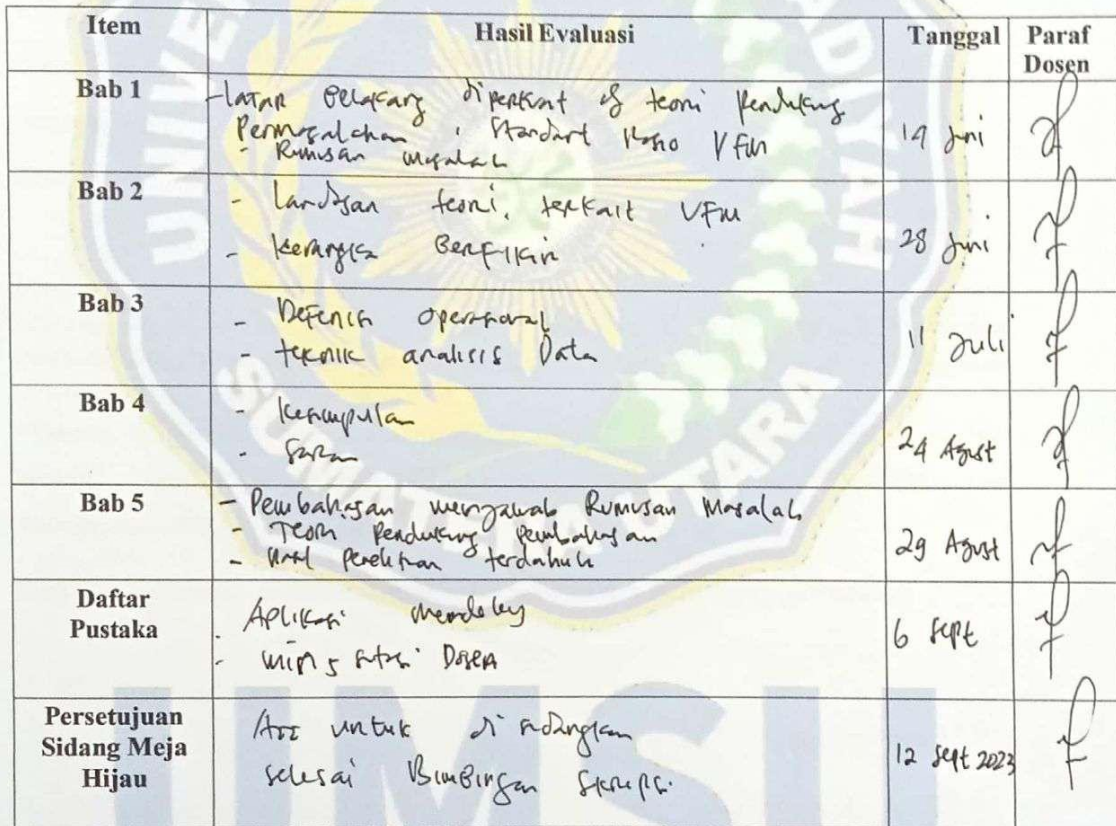 Item Hasil Evaluasi Tanggal Paraf Dosen
Bab 1
- Latar Belakang diperkuat dg teori pendukung
Permasalahan, Standart Rasio VFM
- Rumusan masalah
14 Juni
Bab 2
- Landasan teori, terkait VFM
- Kerangka Berfikir
28 Juni
Bab 3
- Defenisi operasional
- teknik analisis Data
11 Juli
Bab 4
- Kesimpulan
- Saran
24 Agust
Bab 5
- Pembahasan menjawab Rumusan Masalah
- Teori Pendukung pembahasan
- Hasil Penelitian terdahulu
29 Agust
Daftar Pustaka
- Aplikasi mendeley
- min 5 sitasi Dosen
6 Sept
Persetujuan Sidang Meja Hijau
Acc untuk di sidangkan
selesai Bimbingan Skripsi.
12 Sept 2023
SUMATERA UTARA
UMSU